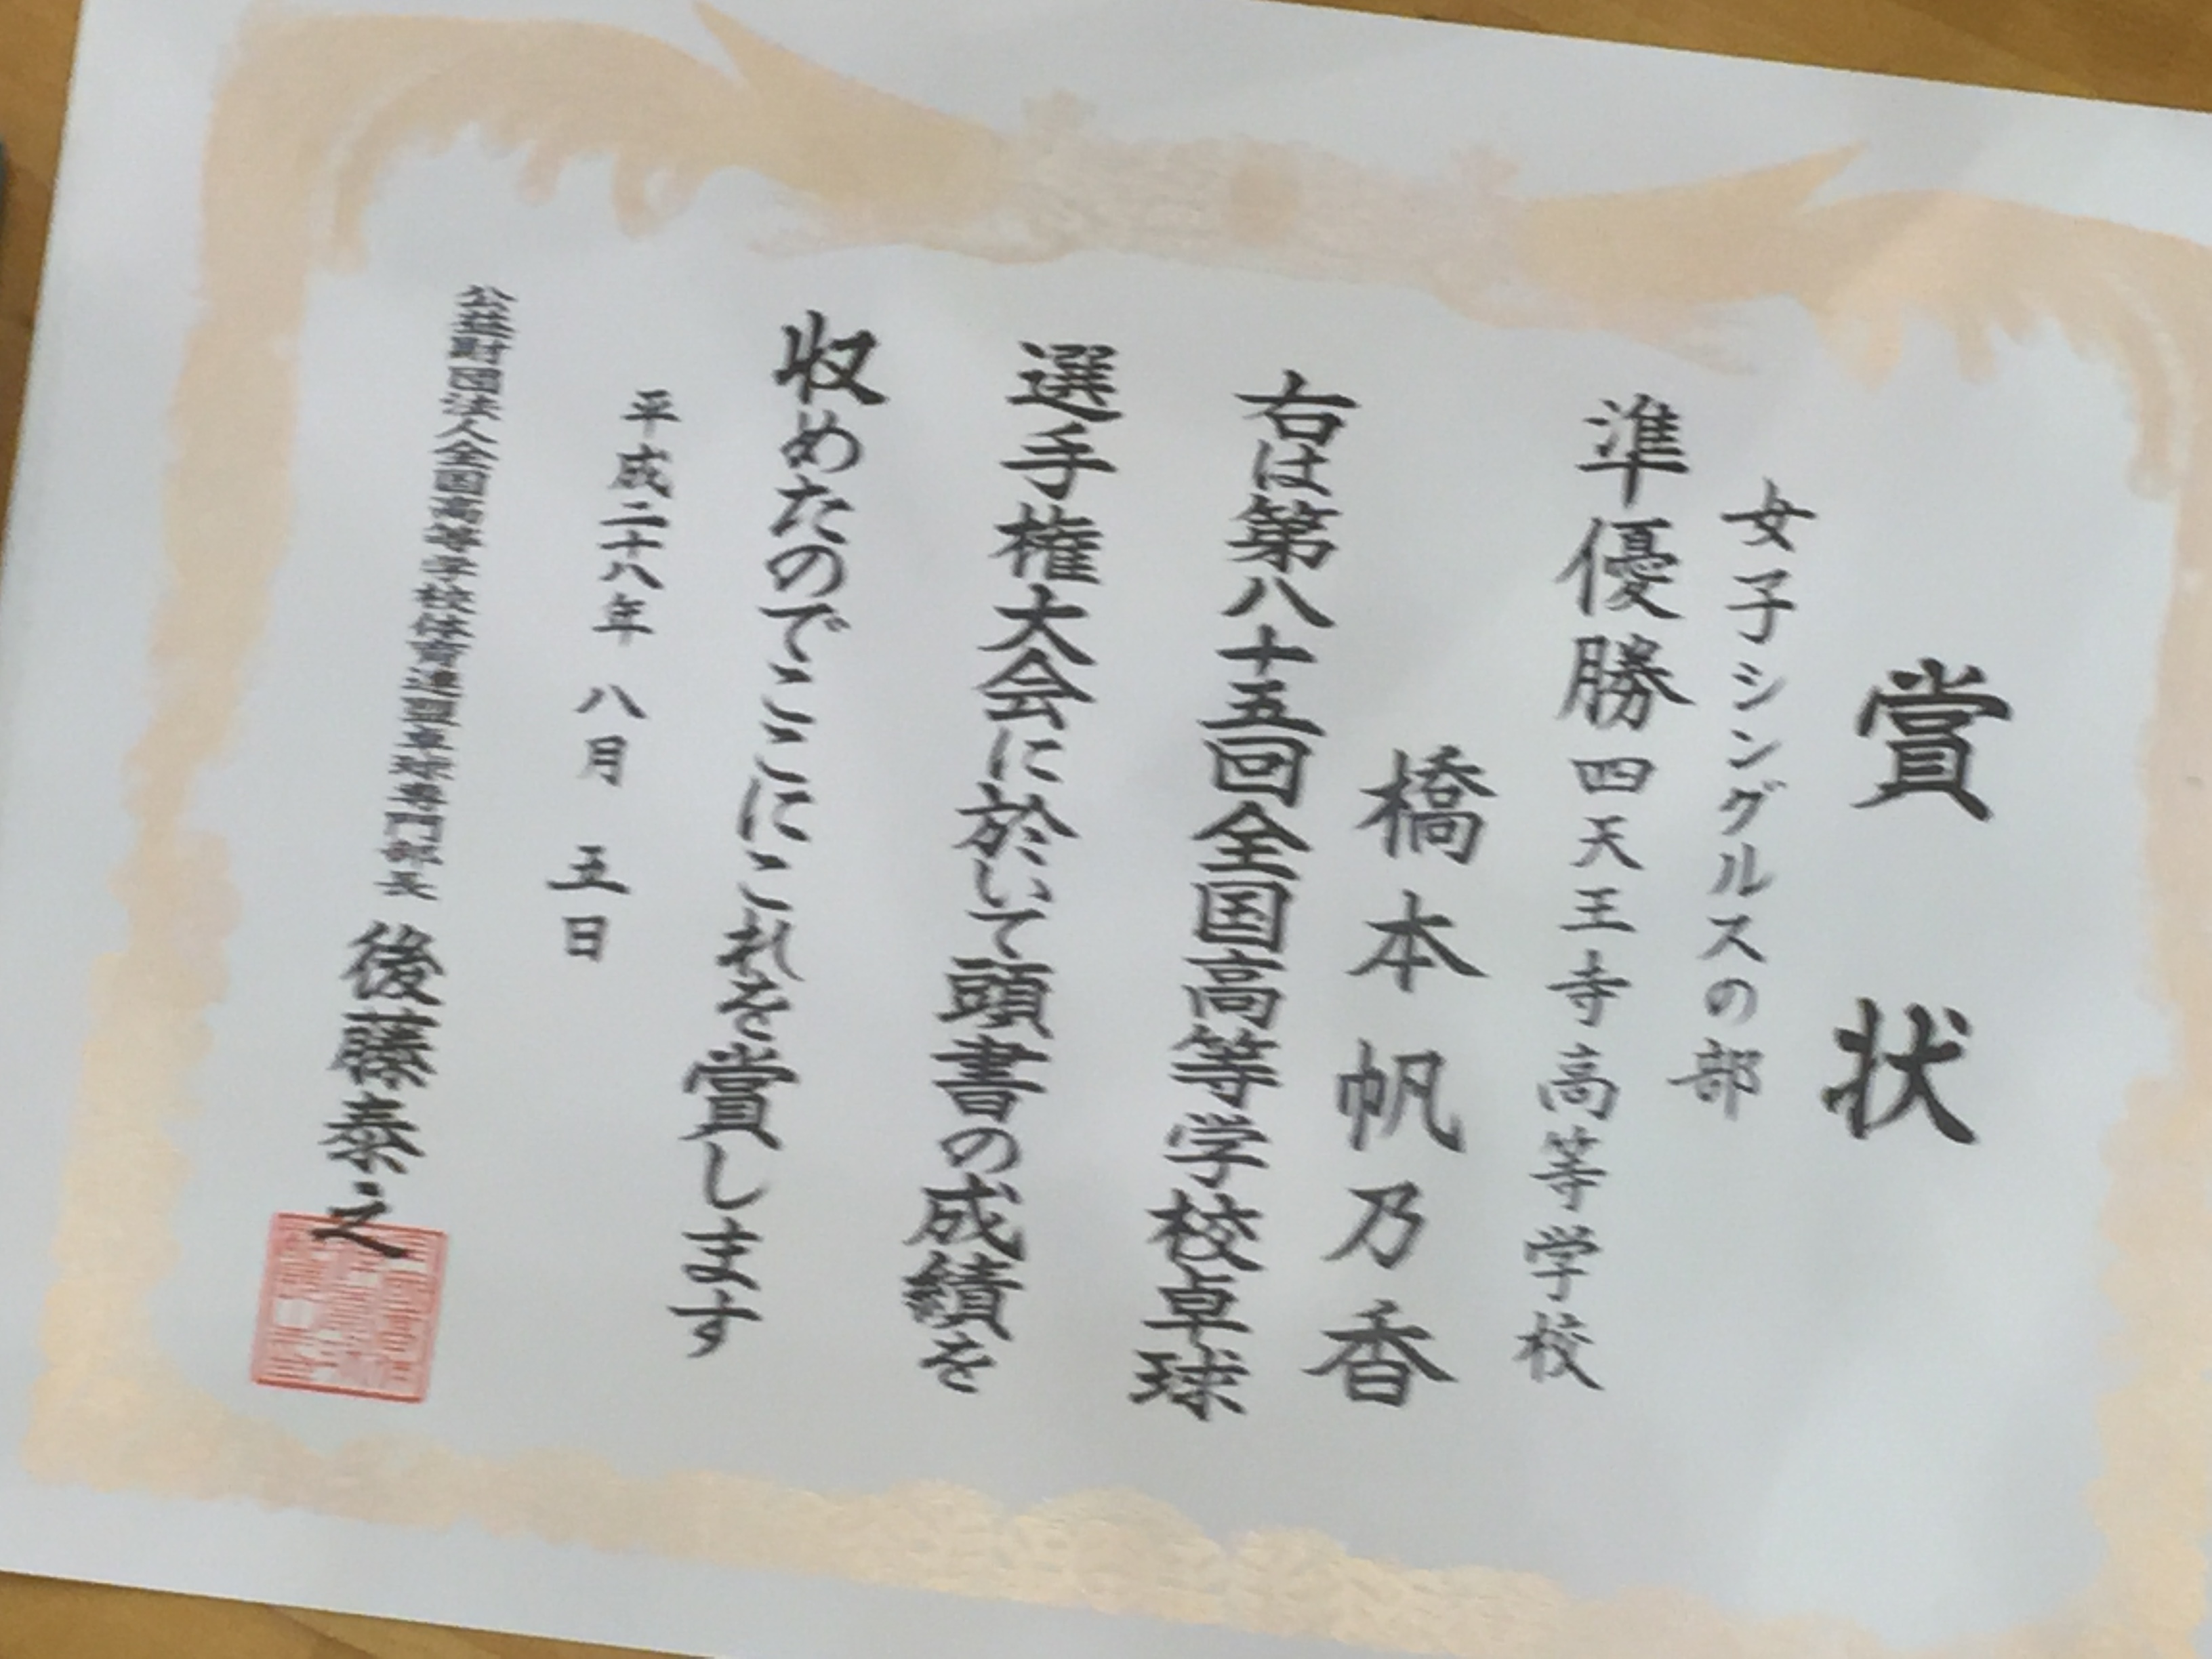 賞状
女子シングルスの部
準優勝 四天王寺高等学校
橋本帆乃香
右は第八十五回全国高等学校卓球
選手権大会に於いて頭書の成績を
収めたのでここにこれを賞します
平成二十八年 八月 五日
公益財団法人全国高等学校体育連盟卓球専門部長 後藤泰之